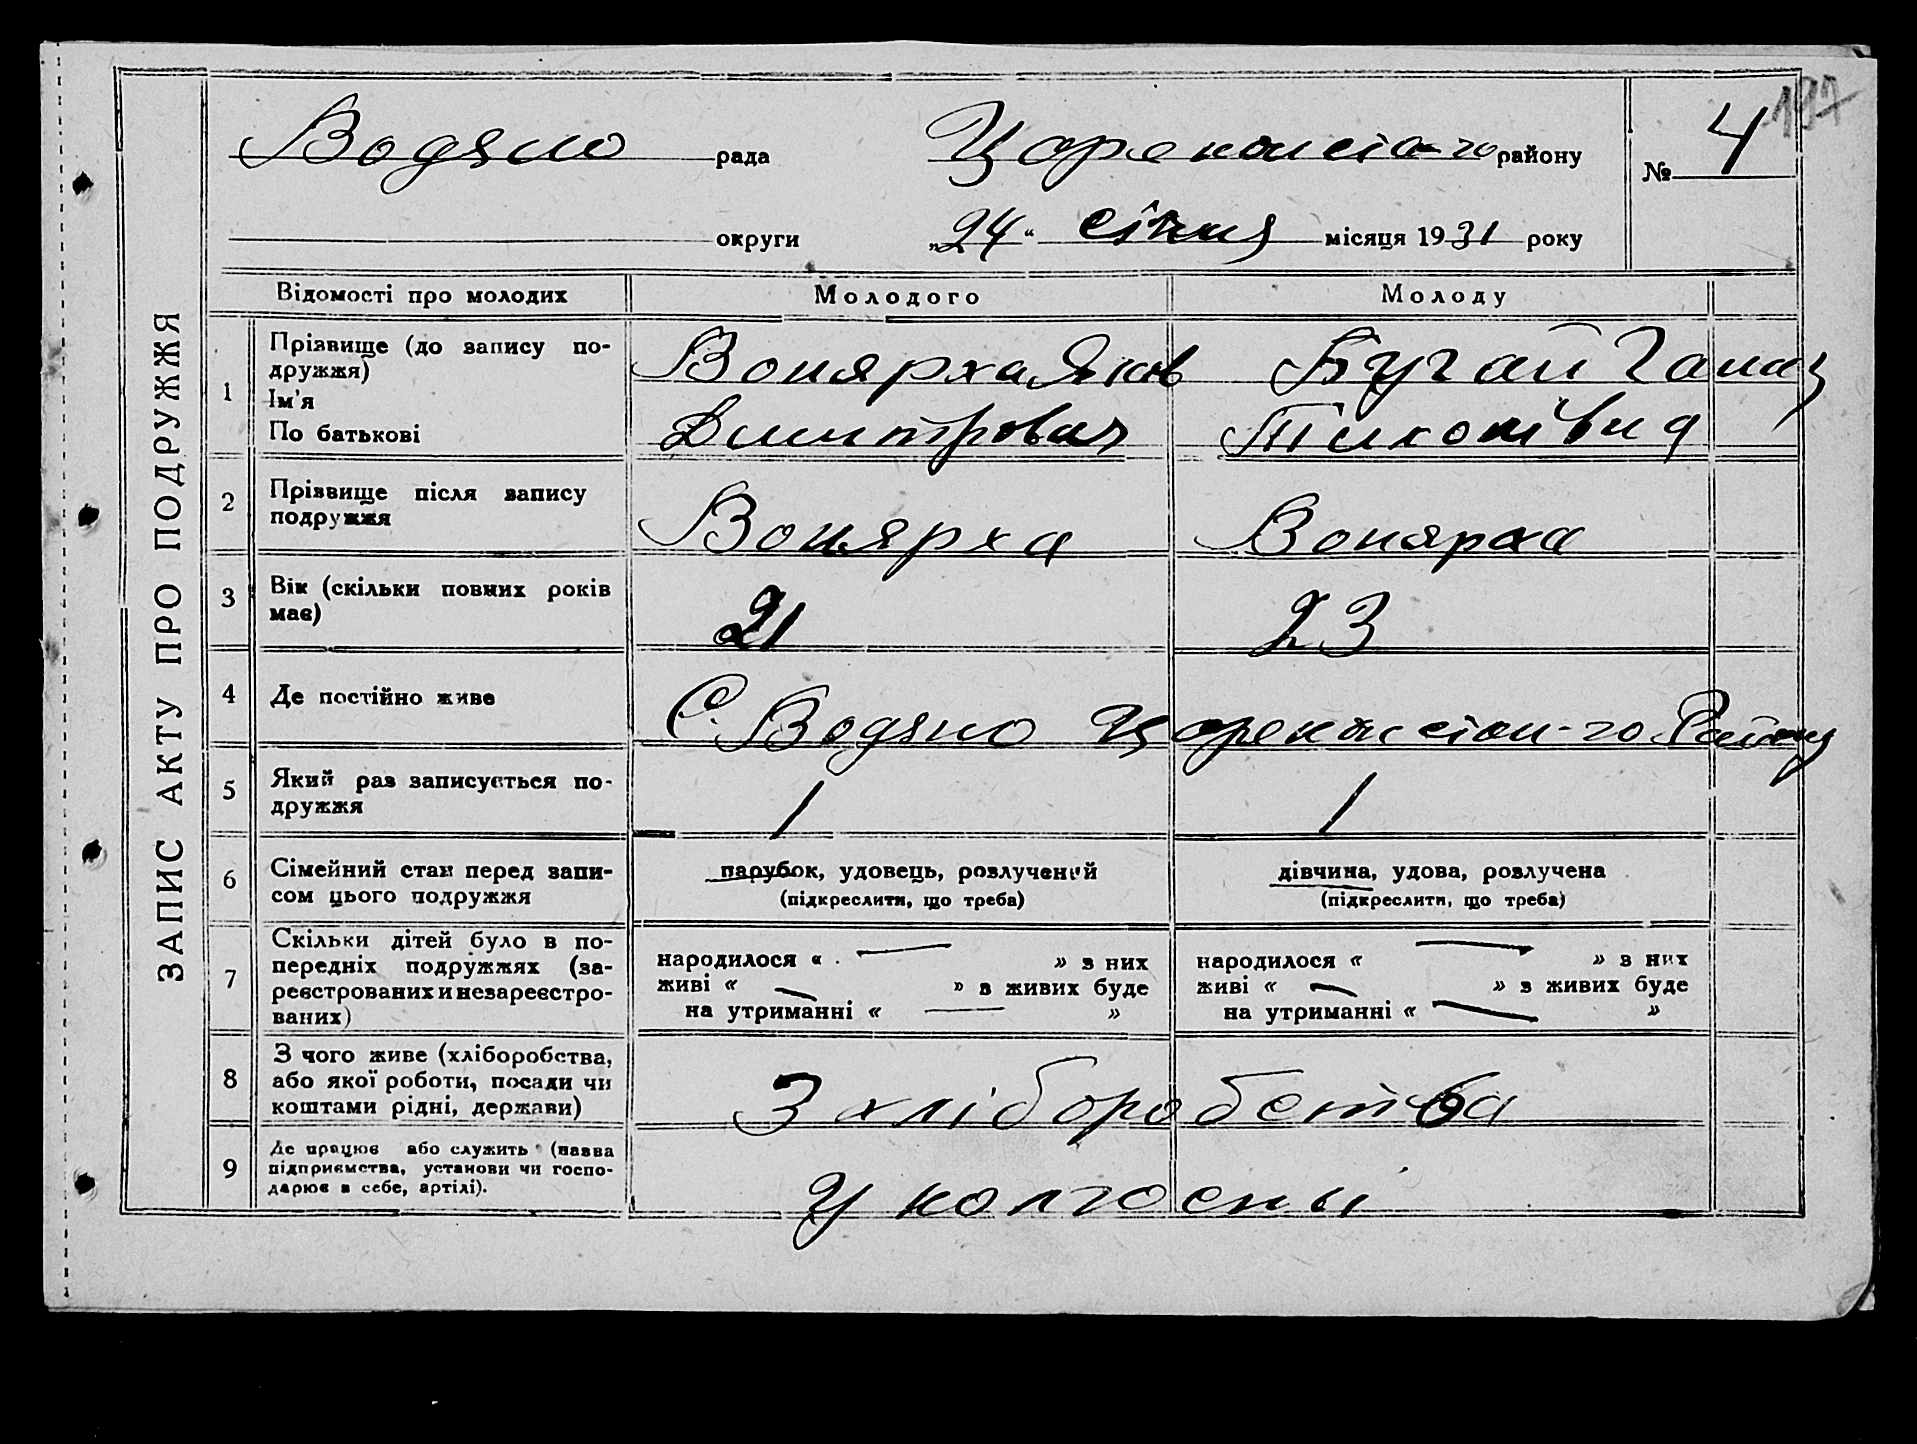 197
Водяно рада Цареконст-го району № 4
округи „24“ січня місяця 1931 року
ЗАПИС АКТУ ПРО ПОДРУЖЖЯ
Відомості про молодих Молодого Молоду
1 Прізвище (до запису по-
дружжя)
Ім'я
По батькові
Вонярха Яків Бугай Ганна
Дмитрович Тихонівна
2 Прізвище після запису
подружжя
Вонярха Вонярха
3 Вік (скільки повних років
має)
21 23
4 Де постійно живе С. Водяно Району
5 Який раз записується по-
дружжя
1 1
6 Сімейний стан перед запи-
сом цього подружжя
парубок, удовець, розлучений дівчина, удова, розлучена
(підкреслити, що треба) (підкреслити, що треба)
7 Скільки дітей було в по-
передніх подружжях (за-
реєстрованих и незареєстро-
ваних)
народилося « — » з них народилося « — » з них
живі « — » з живих буде живі « — » з живих буде
на утриманні « — » на утриманні « — »
8 З чого живе (хліборобства,
або якої роботи, посади чи
коштами рідні, держави)
З хліборобства
9 Де працює або служить (назва
підприємства, установи чи госпо-
дарює в себе, артілі).
У колгоспі